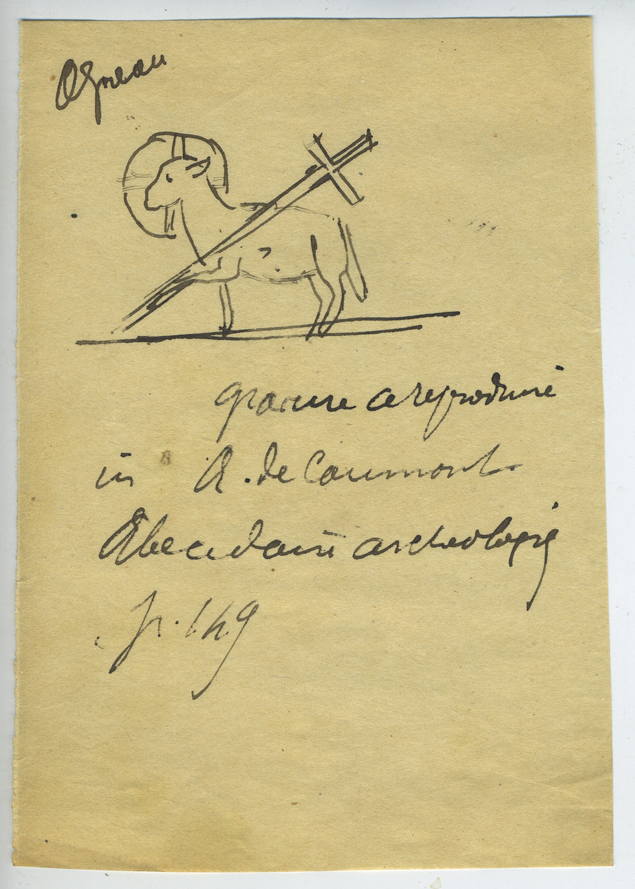 Agneau
gravure a reproduire
in A. de Caumont
Abecedaire archeologie
p. 149